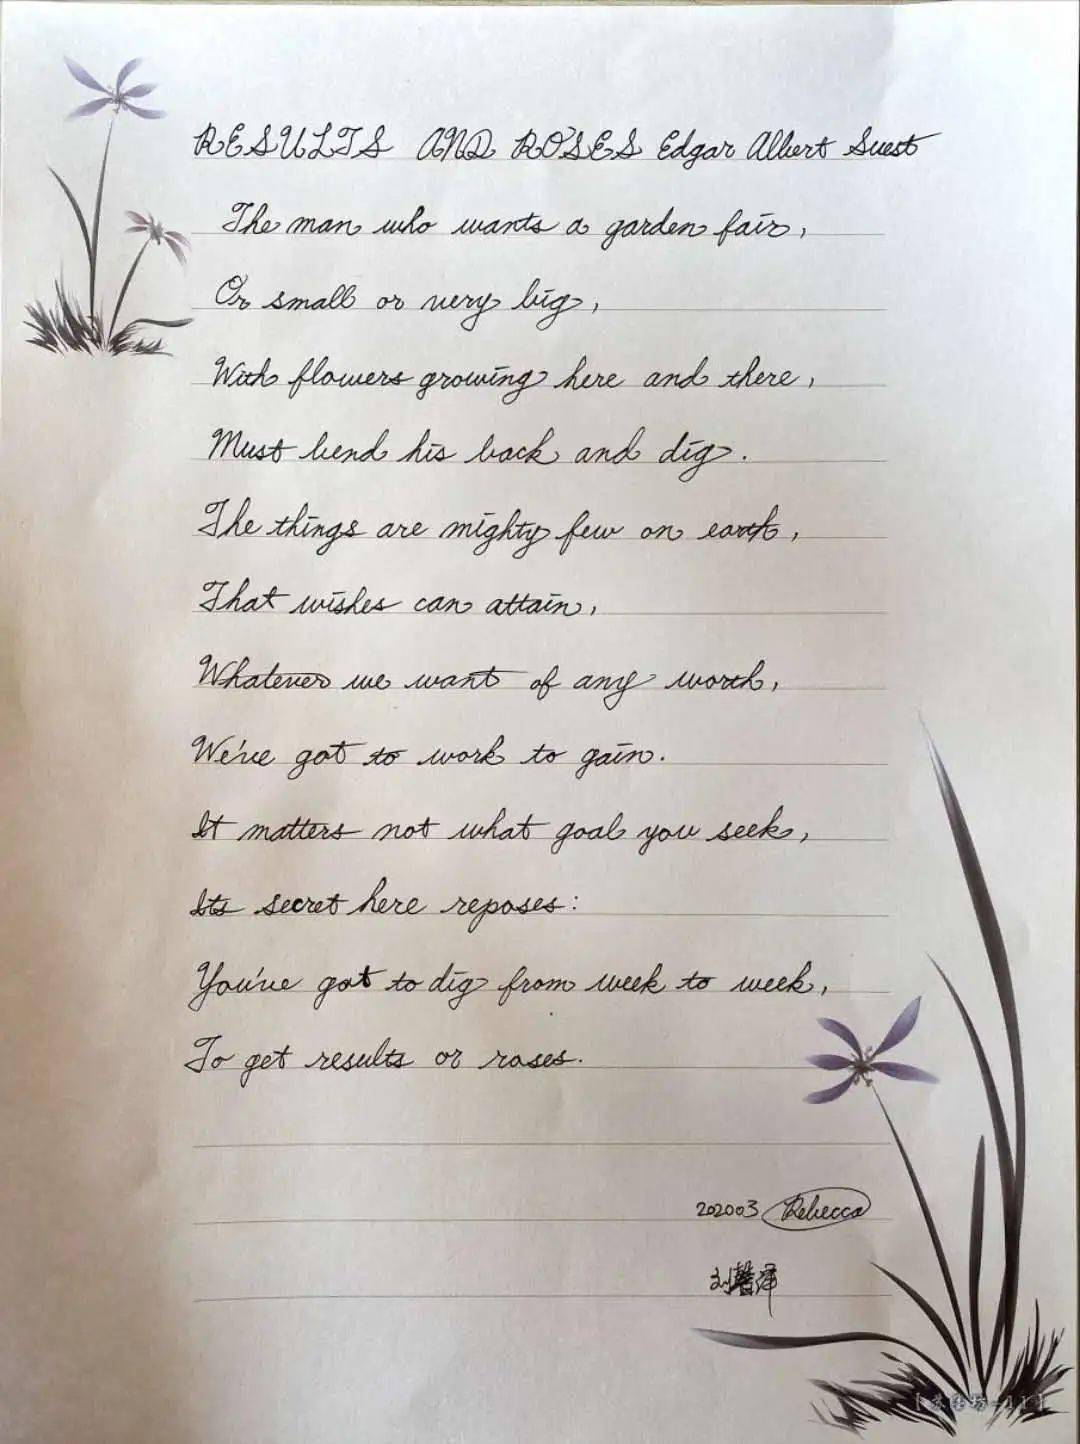 RESULTS AND ROSES Edgar Albert Suest
The man who wants a garden fair,
Or small or very big,
With flowers growing here and there,
Must bend his back and dig.
The things are mighty few on earth,
That wishes can attain,
Whatever we want of any worth,
We've got to work to gain.
It matters not what goal you seek,
Its secret here reposes:
You've got to dig from week to week,
To get results or roses.
202003 Rebecca
刘馨泽